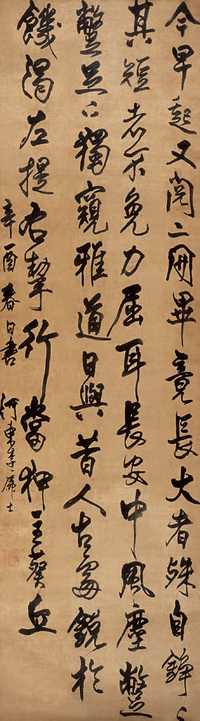 今早起又閱二冊畢竟長大者殊自錚〻
其短者不免力屈耳長安中風塵蹩
躠足下獨窺雅道日與昔人古處銳於
饑渴左提右挈行當狎主葵丘
辛酉春日書 河東李士